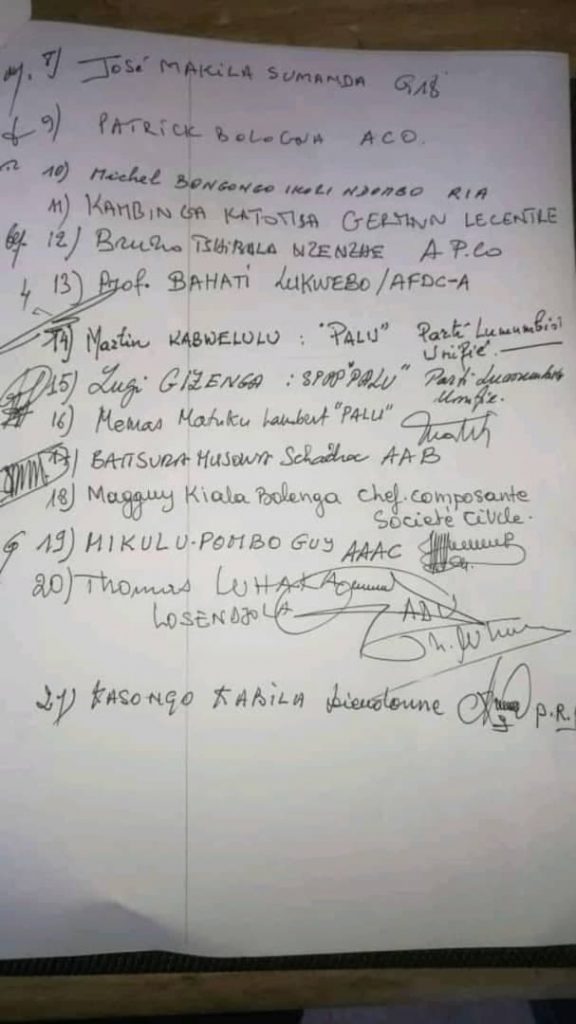 8) José MAKILA SUMANDA G18
9) PATRICK BOLOGNA ACO.
10) Michel BONGONGO IKOLI NDOMBO RIA
11) KAMBINGA KATOTISA GERMAIN LECENTRE
12) Bruno TSHIBALA NZENZHE A P.Co
13) Prof. BAHATI LUKWEBO/AFDC-A
14) Martin KABWELULU : "PALU" Parti Lumumbiste
Unifié.
15) Lugi GIZENGA : "PALU" Parti Lumumbiste
Unifié.
16) Memas Matuku Lambert "PALU"
17) BAITSURA MUSOWA Schadrac AAB
18) Magguy Kiala Bolenga Chef. composante
Societé Civile.
19) MIKULU-POMBO GUY AAAC
20) Thomas LUHAKA
LOSENDJOLA ADU
21) KASONGO KABILA Dieudonne P.R.